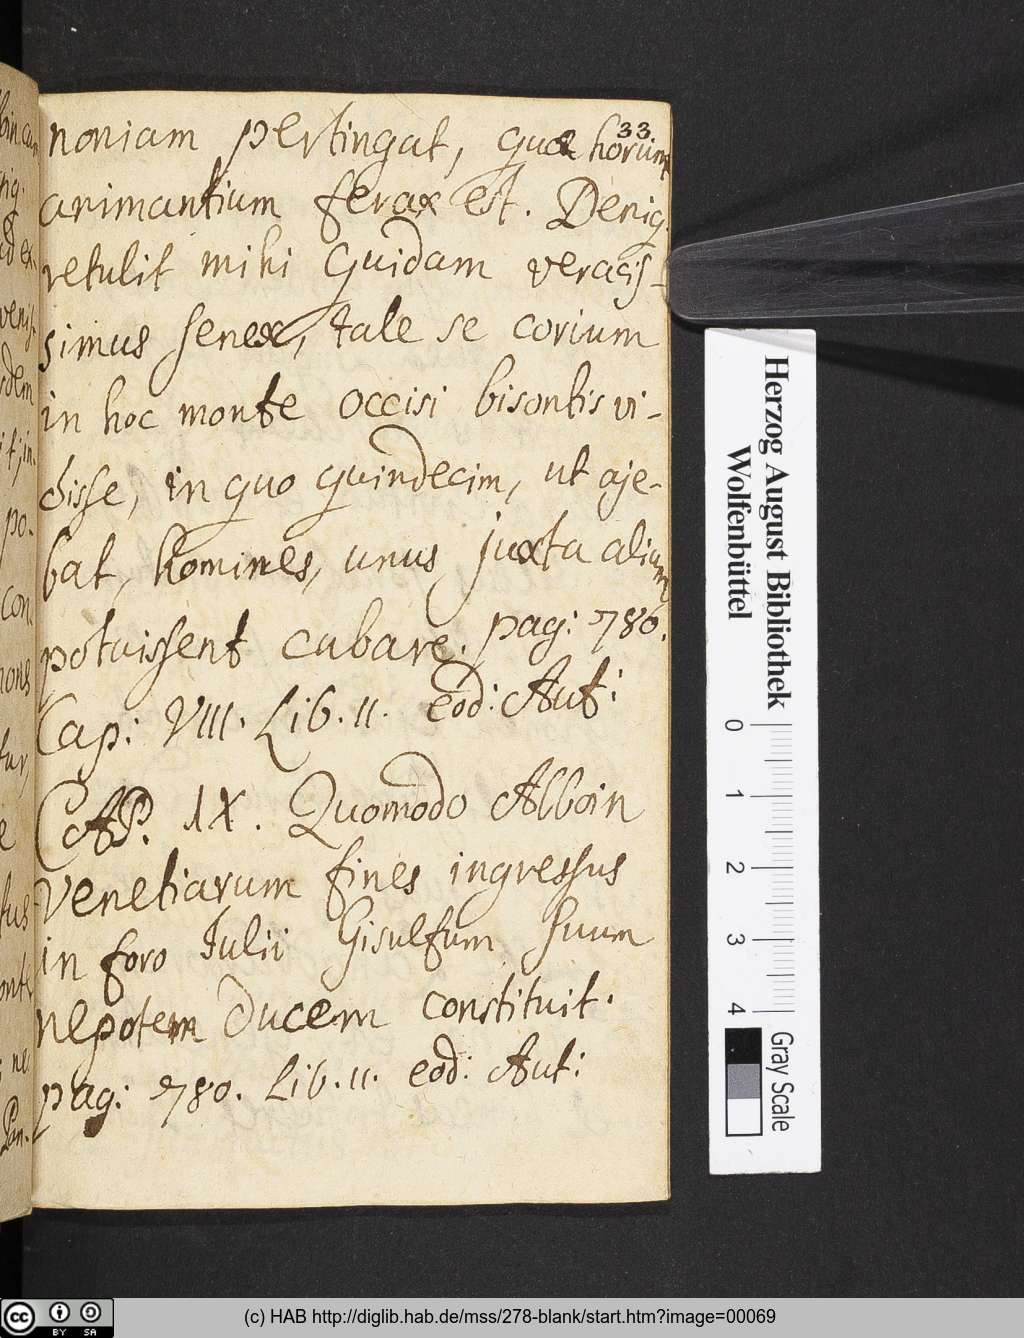 33
noniam pertingat, quæ horum
arimantium ferax est. Deniq.
retulit mihi quidam veracis-
simus senex, tale se corium
in hoc monte occisi bisontis vi-
disse, in quo quindecim, ut aje-
bat, homines, unus juxta alium
potuissent cubare. pag: 780.
Cap: VIII. Lib. II. eod: Aut:
CAP. IX. Quomodo Alboin
Venetiarum fines ingressus
in foro Iulii Gisulfum suum
nepotem ducem constituit.
pag: 780. Lib. II. eod: Aut:
Herzog August Bibliothek
Wolfenbüttel
0 1 2 3 4
Gray Scale
cc BY SA
(c) HAB http://diglib.hab.de/mss/278-blank/start.htm?image=00069